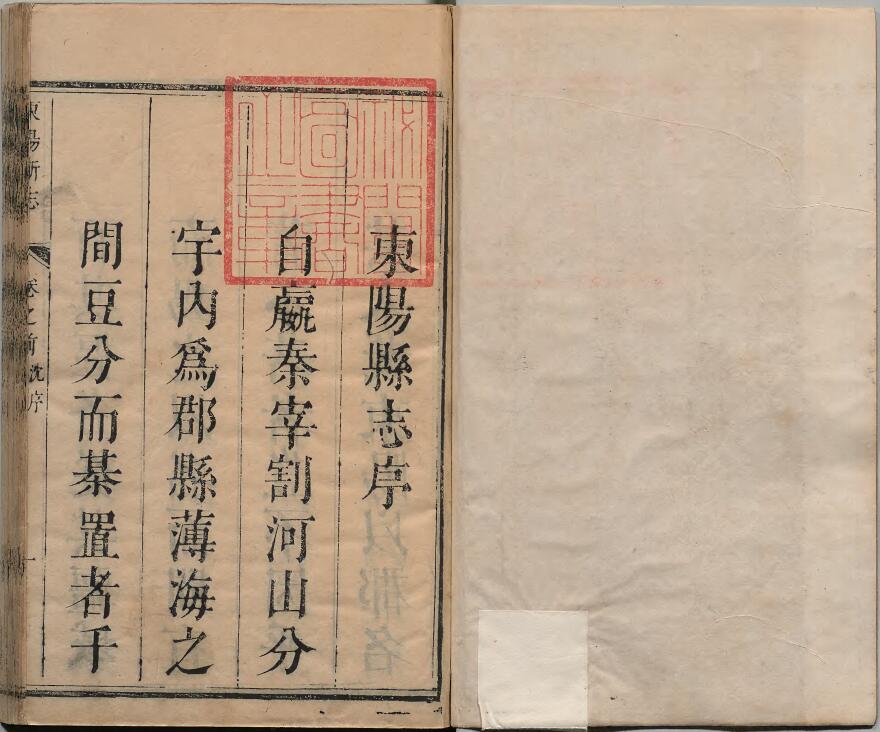 東陽縣志序
自嬴秦宰割河山分
宇內爲郡縣薄海之
間豆分而棊置者千
東陽新志
卷之前 沈序
一